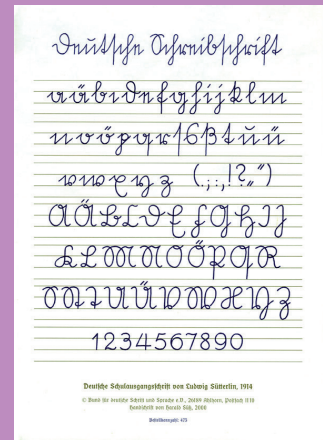 Deutsche Schreibschrift
a ä b c d e f g h i j k l m
n o ö p q r ſ s ß t u ü
v w x y z (.,:;!? „“)
A Ä B C D E F G H I J
K L M N O Ö P Q R
S St T U Ü V W X Y Z
1234567890
Deutsche Schulausgangsschrift von Ludwig Sütterlin, 1914
© Bund für deutsche Schrift und Sprache e.V., 26189 Ahlhorn, Postfach 11 10
Handschrift von Harald Süß, 2000